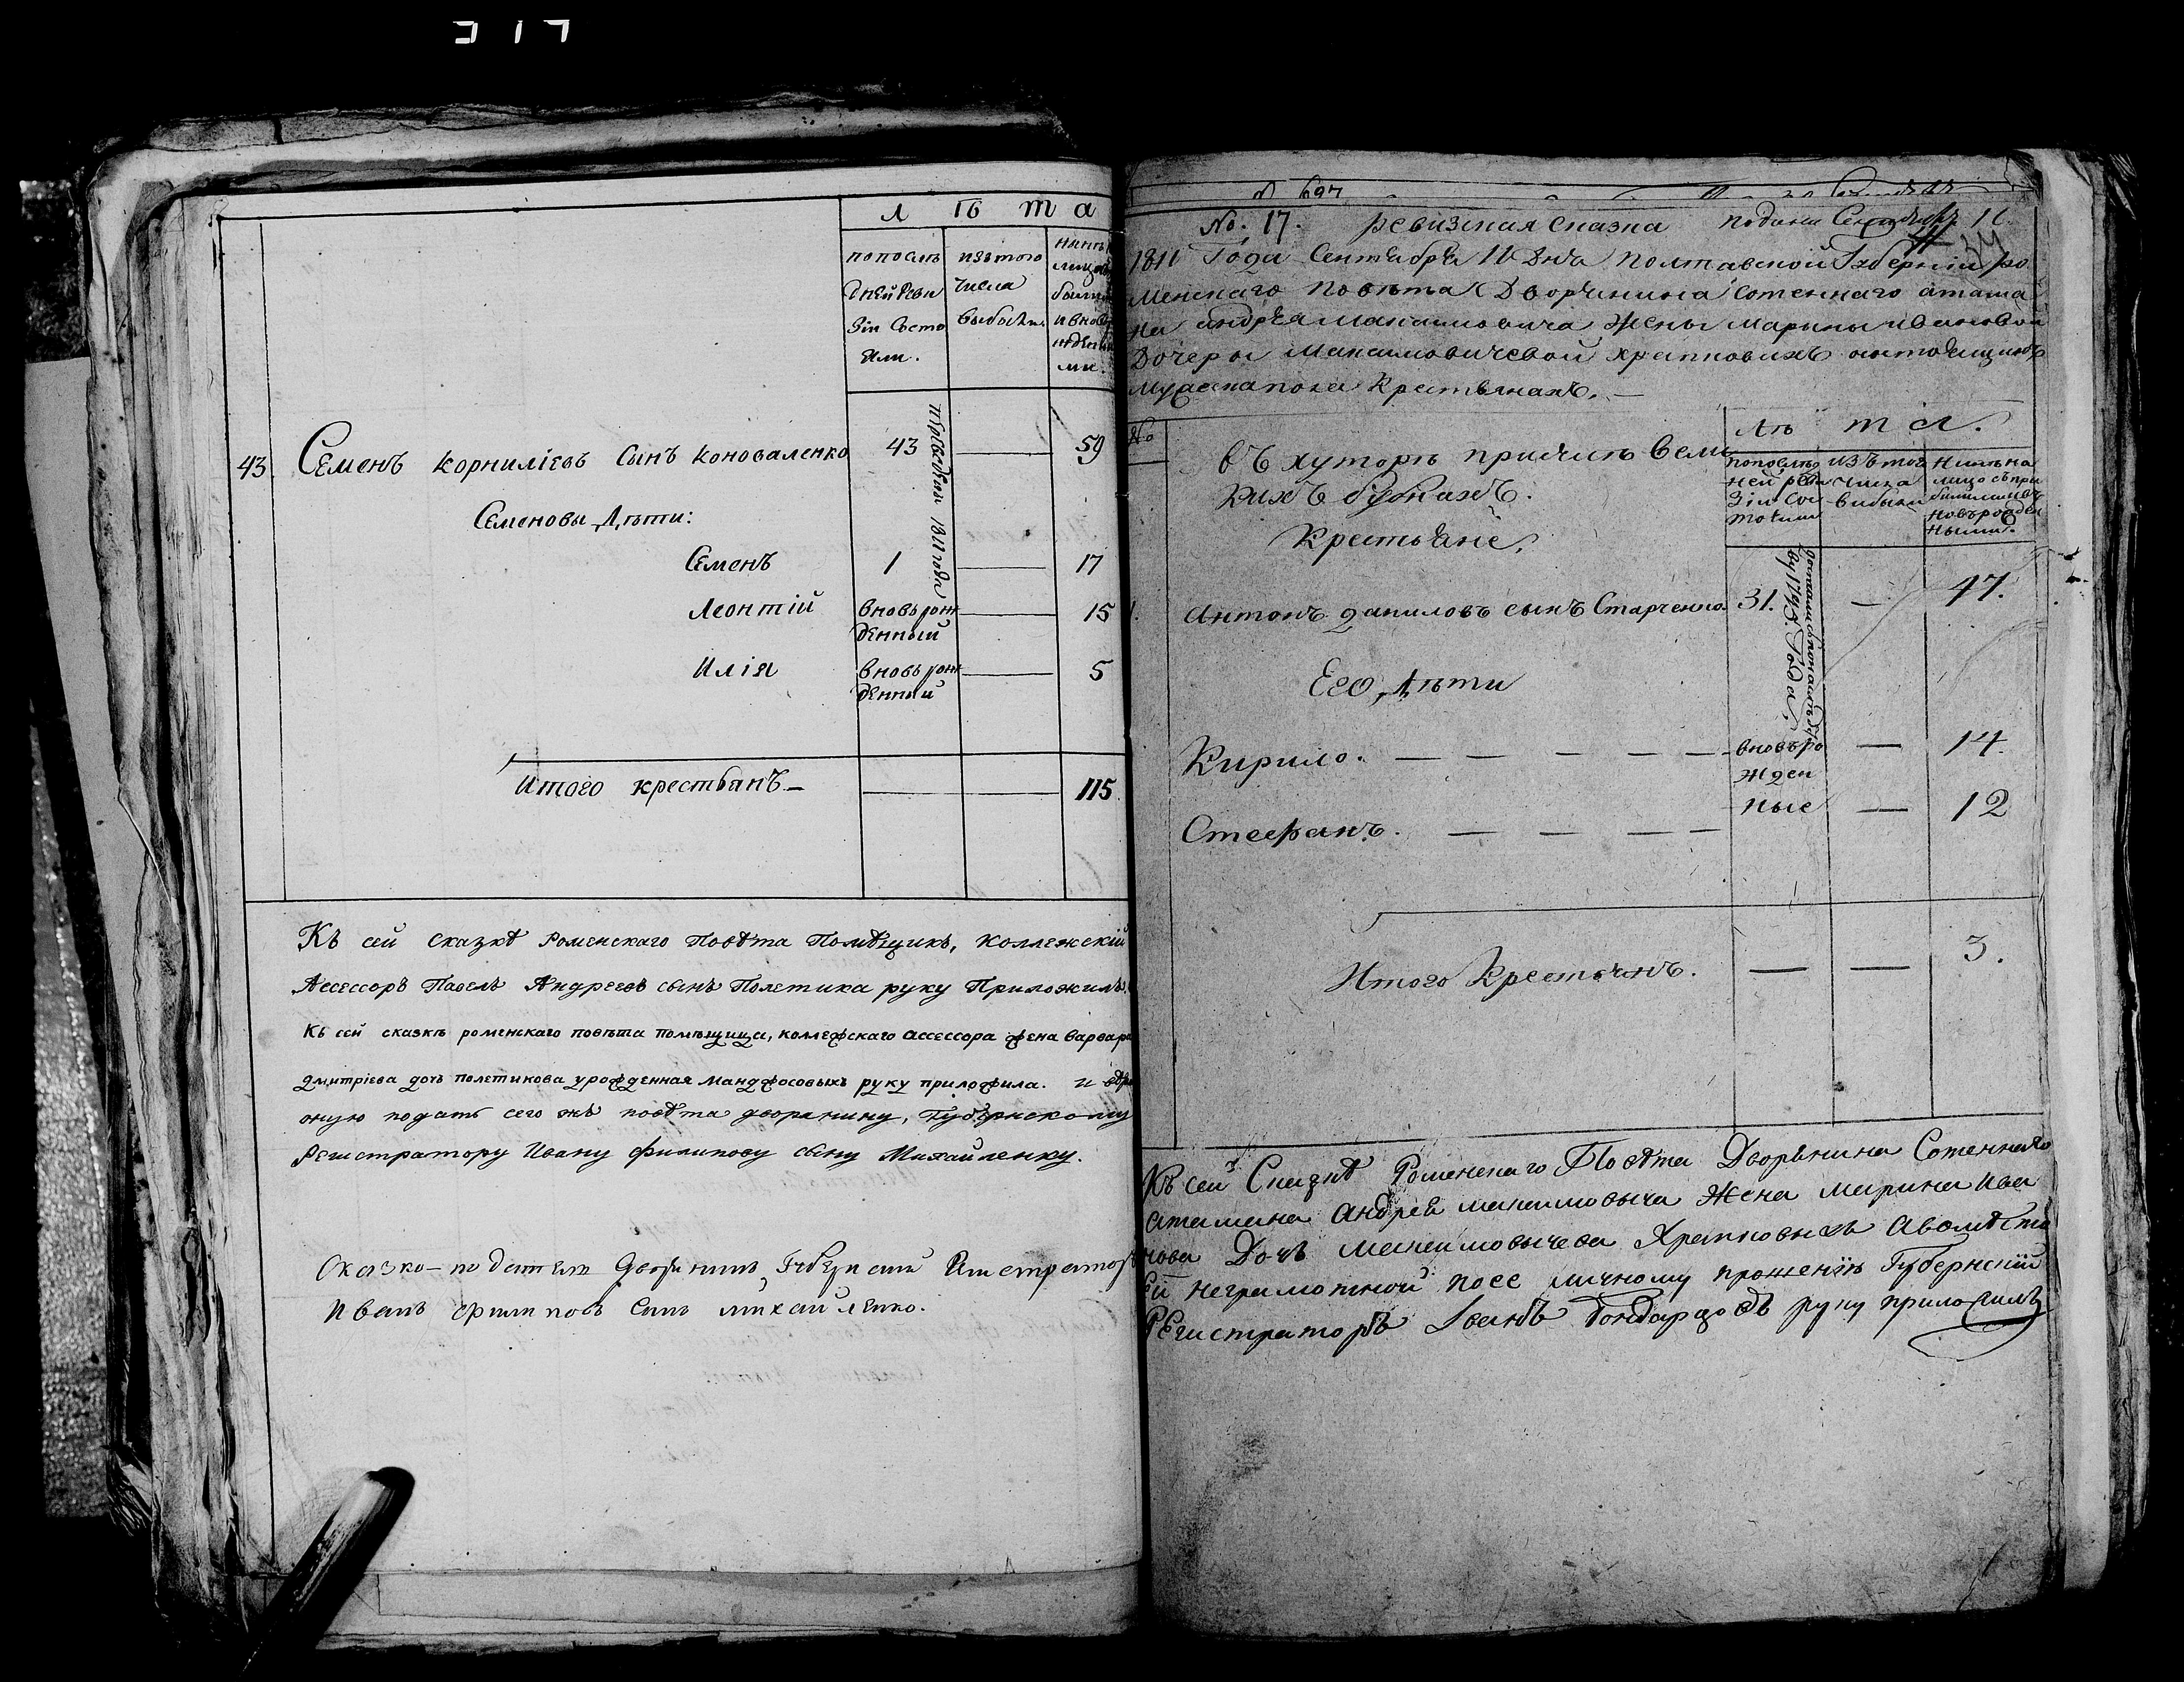 Л ѣ т а
по послѣ
дней реви
зіи состо
яли.
изъ того
числа
выбыли
43. Семенъ Корниліевъ сынъ Коноваленко 43 59
прибылой 1811 года
Семеновы дѣти:
Семенъ 1 17
Леонтій вновь рож
денный 15
Илія вновь рож
денный 5
Итого крестьянъ 115
Къ сей сказкѣ Роменскаго Повѣта Помѣщикъ, Коллежскій
Ассессоръ Павелъ Андреевъ сынъ Полетика руку Приложилъ.
Къ сей сказкѣ роменскаго повѣта помѣщица, коллежскаго ассессора жена варвара
дмитріева дочь полетикова урожденная манджосовыхъ руку приложила. и
оную подать сего жъ повѣта дворянину, Губернскому
Регистратору Ивану филипову сыну Михайленку.
Сказко-подател дворянинъ, Губернски Регистраторъ
Иванъ Филиповъ Синъ Михайленко.
№ 697
No. 17. ревизская сказка подана Сентября 11
1811 Года Сентября 11 Дня Полтавской Губерніи ро
менскаго повѣта Дворянина Сотеннаго атама
на андрея Максимовича Жены Марины ивановой
Дочеры Максимовичевой храпковихъ
мужеска пола Крестьянахъ.
No
въ хуторѣ при селѣ Вели
кихъ бубнахъ.
Крестьяне.
Лѣ та.
по послѣд
ней реви
зіи сос
тояли
изъ того
числа
выбыли
Нинѣ на
лицо съ при
билими и въ
новь рожден
ными.
1. Антонъ даниловъ сынъ Старченко 31. — 47.
1795. Года
Его дѣти
Кирило. — — — — — вновь ро — 14.
жден
Стефанъ. — — — — ные — 12
Итого Крестянъ. — — 3.
Къ сей Сказкѣ Роменскаго Повѣта Дворянина Сотеннаго
атамана Андрея максимовыча Жена Марина Ива
нова Дочь Максимовычева Храпковыхъ а вомѣсто
ей неграмотной по ее личному прошенію Губернскій
Регистраторъ Іванъ Бондарцовъ руку приложилъ